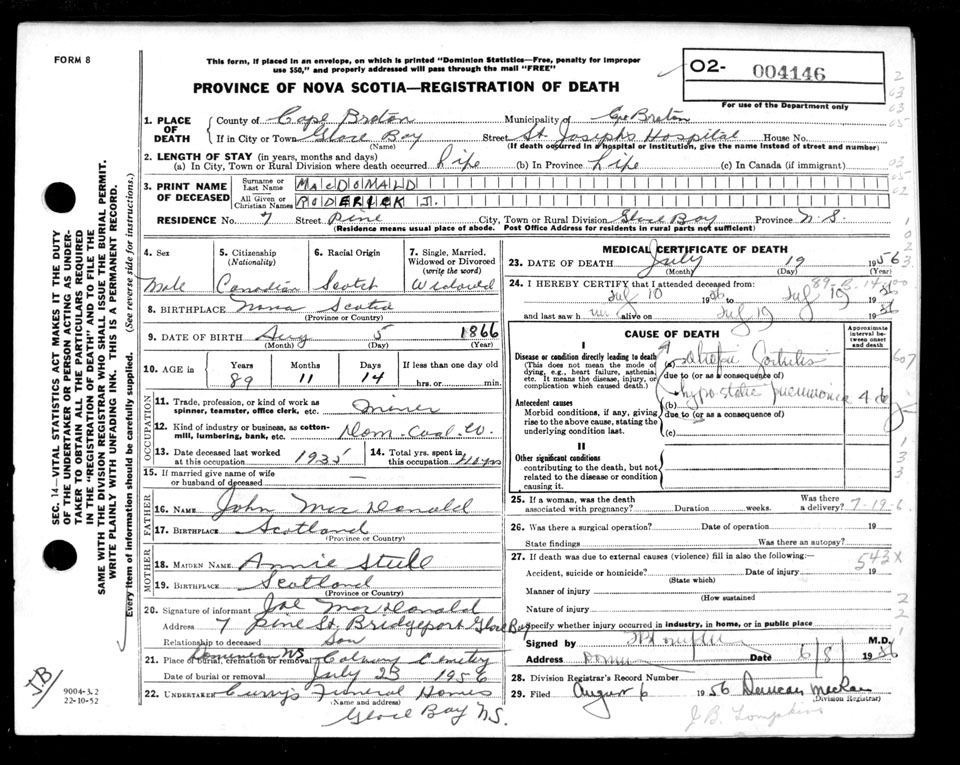 FORM 8
This form, if placed in an envelope, on which is printed "Dominion Statistics—Free, penalty for improper
use $50," and properly addressed will pass through the mail "FREE"
PROVINCE OF NOVA SCOTIA—REGISTRATION OF DEATH
O2- 004146
For use of the Department only
1. PLACE OF DEATH
County of Cape Breton Municipality of Cape Breton
If in City or Town Glace Bay Street St. Joseph's Hospital House No.
(Name) (If death occurred in a hospital or institution, give the name instead of street and number)
2. LENGTH OF STAY (in years, months and days)
(a) In City, Town or Rural Division where death occurred Life (b) In Province Life (c) In Canada (if immigrant)
3. PRINT NAME OF DECEASED
Surname or Last Name MACDONALD
All Given or Christian Names RODERICK J.
RESIDENCE No. 7 Street Pine City, Town or Rural Division Glace Bay Province N.S.
(Residence means usual place of abode. Post Office Address for residents in rural parts not sufficient)
SEC. 14—VITAL STATISTICS ACT MAKES IT THE DUTY
OF THE UNDERTAKER OR PERSON ACTING AS UNDER-
TAKER TO OBTAIN ALL THE PARTICULARS REQUIRED
IN THE "REGISTRATION OF DEATH" AND TO FILE THE
SAME WITH THE DIVISION REGISTRAR WHO SHALL ISSUE THE BURIAL PERMIT.
WRITE PLAINLY WITH UNFADING INK. THIS IS A PERMANENT RECORD.
Every item of information should be carefully supplied. (See reverse side for instructions.)
4. Sex
Male
5. Citizenship
(Nationality)
Canadian
6. Racial Origin
Scotch
7. Single, Married, Widowed or Divorced
(write the word)
Widowed
8. BIRTHPLACE Nova Scotia
(Province or Country)
9. DATE OF BIRTH Aug 5 1866
(Month) (Day) (Year)
10. AGE in
Years Months Days If less than one day old
89 11 14 hrs. or min.
OCCUPATION
11. Trade, profession, or kind of work as
spinner, teamster, office clerk, etc. Miner
12. Kind of industry or business, as cotton-
mill, lumbering, bank, etc. Dom. Coal Co.
13. Date deceased last worked
at this occupation 1935
14. Total yrs. spent in
this occupation yrs
15. If married give name of wife
or husband of deceased —
FATHER
16. NAME John MacDonald
17. BIRTHPLACE Scotland
(Province or Country)
MOTHER
18. MAIDEN NAME Annie Steele
19. BIRTHPLACE Scotland
(Province or Country)
20. Signature of informant Joe MacDonald
Address 7 Pine St. Bridgeport Glace Bay
Relationship to deceased Son
Dominion NS
21. Place of burial, cremation or removal Calvary Cemetery
Date of burial July 23 1956
22. UNDERTAKER Curry's Funeral Homes
(Name and address)
Glace Bay N.S.
9004-3.2
22-10-52
MEDICAL CERTIFICATE OF DEATH
23. DATE OF DEATH July 19 1956
(Month) (Day) (Year)
24. I HEREBY CERTIFY that I attended deceased from:
July 10 1956 to July 19 1956
and last saw h im alive on July 19 1956
CAUSE OF DEATH
Approximate interval between onset and death
I
Disease or condition directly leading to death
(This does not mean the mode of
dying, e.g., heart failure, asthenia,
etc. It means the disease, injury, or
complication which caused death.)
(a)
due to (or as a consequence of)
Antecedent causes
Morbid conditions, if any, giving
rise to the above cause, stating the
underlying condition last.
(b) hypostatic pneumonia 4 d
due to (or as a consequence of)
(c)
II
Other significant conditions
contributing to the death, but not
related to the disease or condition
causing it.
25. If a woman, was the death
associated with pregnancy? Duration weeks. Was there a delivery? 7-19-6
26. Was there a surgical operation? Date of operation 19
State findings Was there an autopsy?
27. If death was due to external causes (violence) fill in also the following: 543X
Accident, suicide or homicide? Date of injury 19
(State which)
Manner of injury
(How sustained)
Nature of injury
Specify whether injury occurred in industry, in home, or in public place
Signed by M.D.
Address Date 6/8/ 1956
28. Division Registrar's Record Number
29. Filed August 6 1956 Duncan MacRae
(Division Registrar)
J B. Tompkins